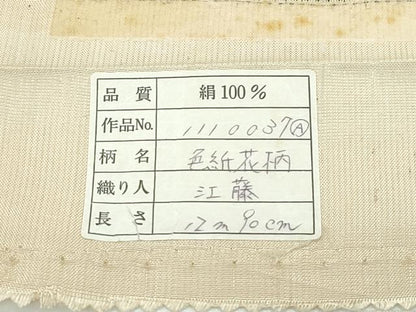 品質 絹100%
作品No. 1110037Ⓐ
柄名 色紙花柄
織り人 江藤
長さ 12m90cm